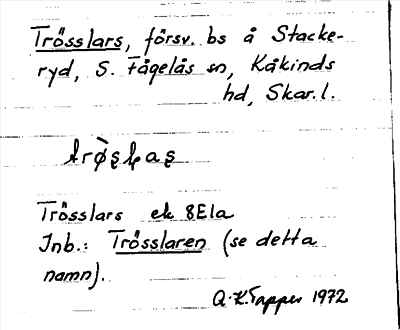 Trösslars, försv. bs å Stacke-
ryd, S. Fågelås sn, Kåkinds
hd, Skar.l.
Trösslars ek 8E1a
Inb.: Trösslaren (se detta
namn).
1972